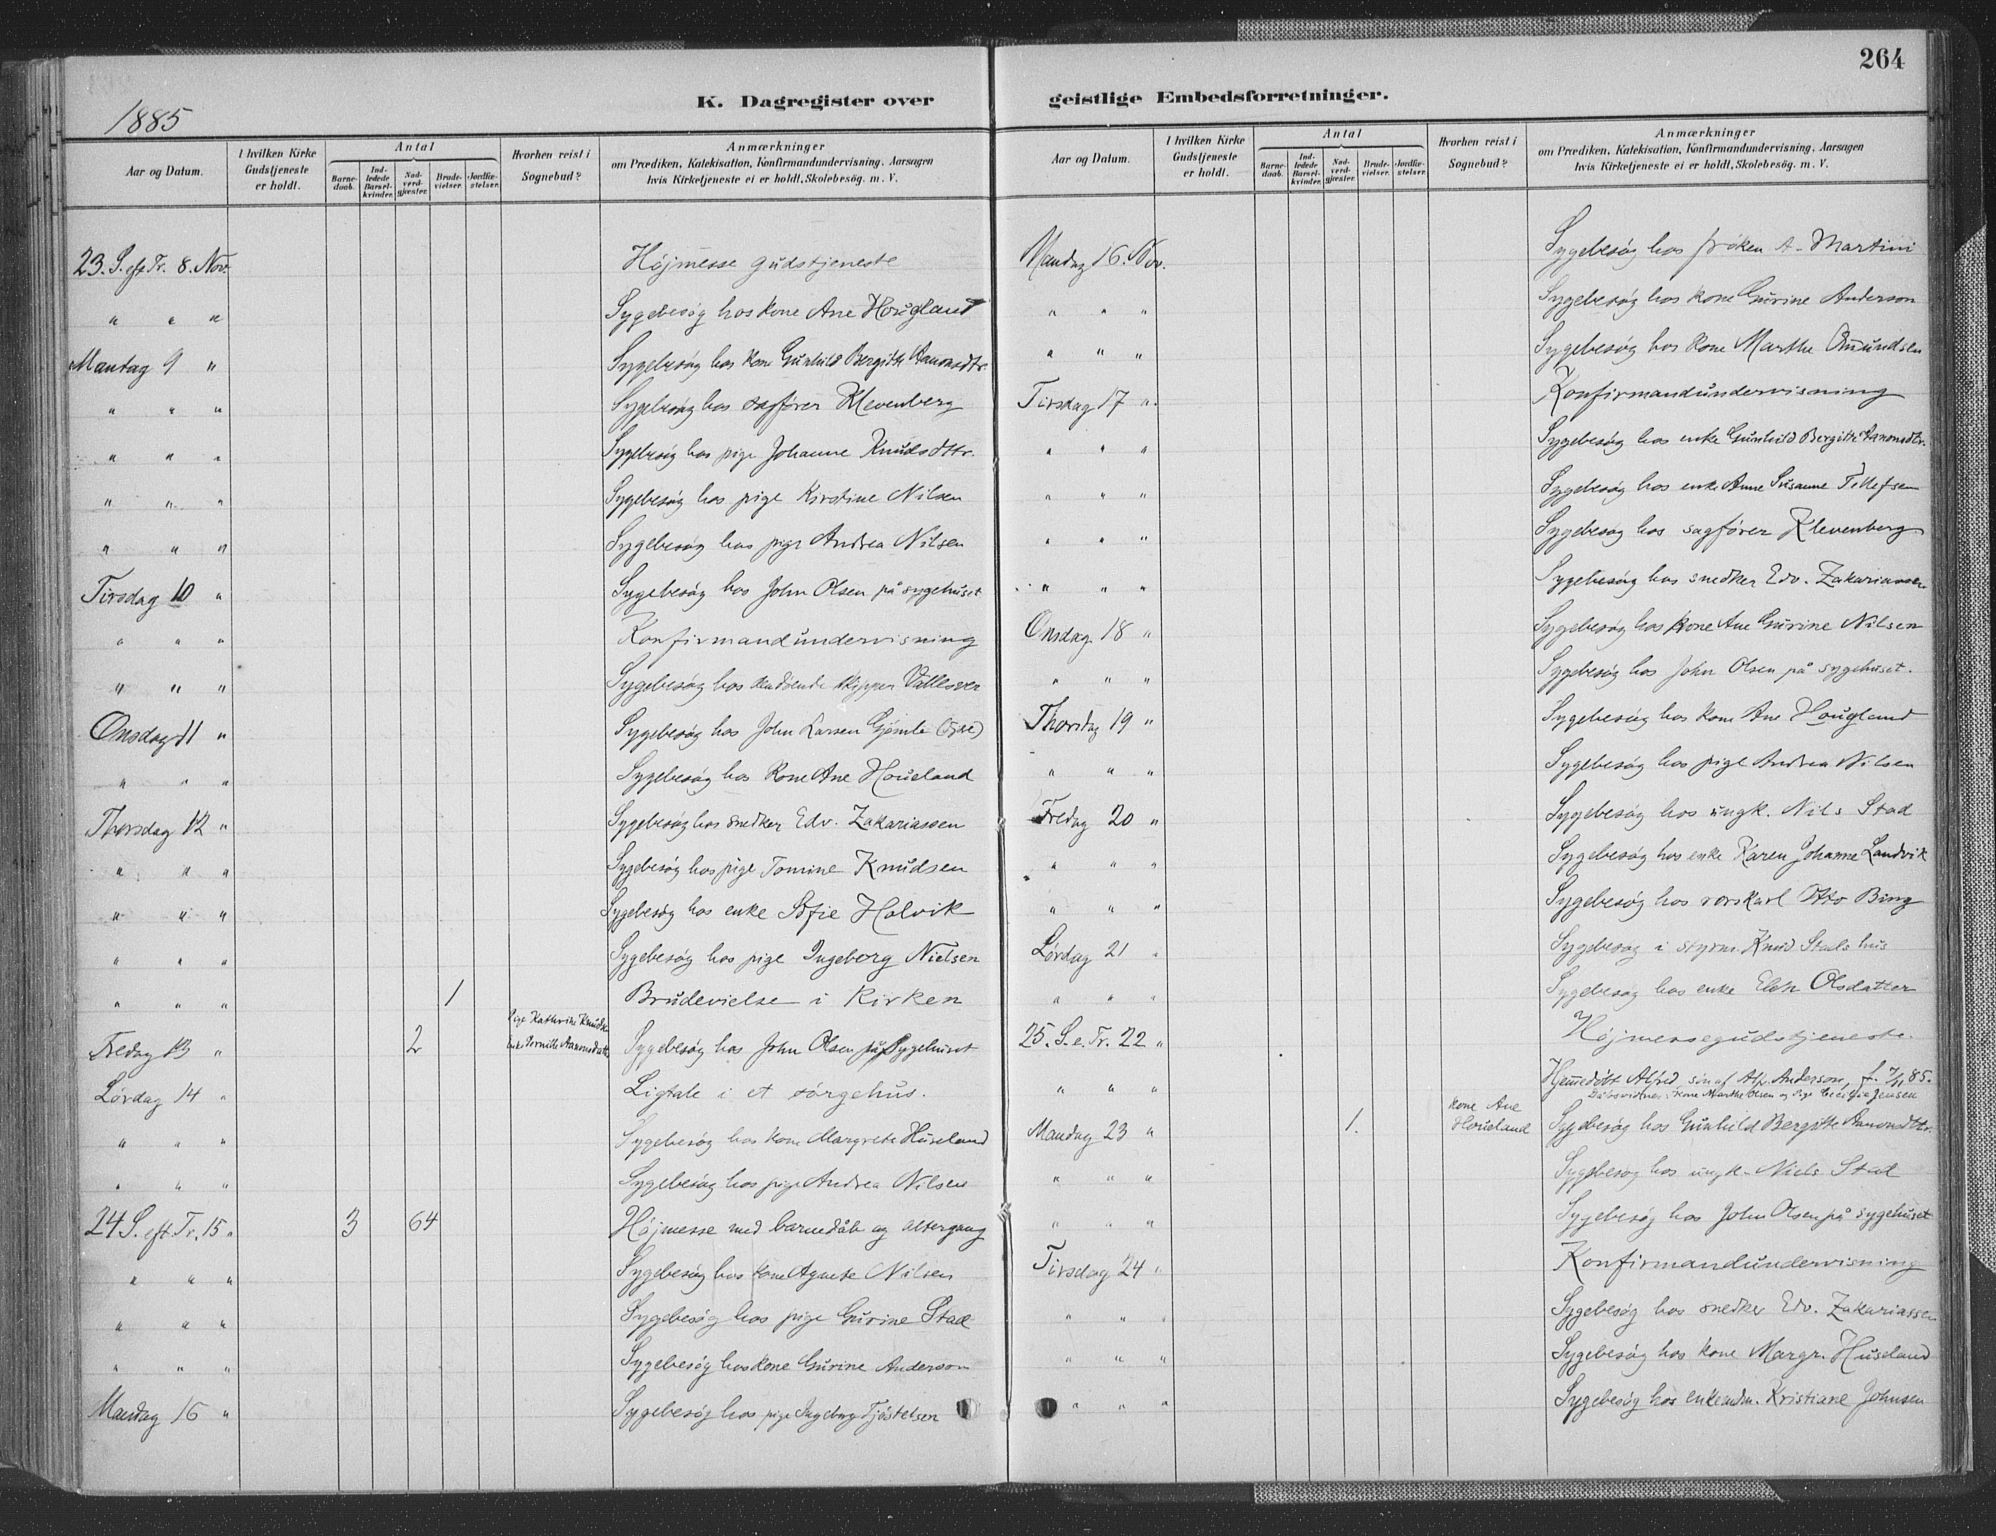 264
K. Dagregister over geistlige Embedsforretninger.
1885
Aar og Datum.
I hvilken Kirke Gudstjeneste er holdt.
Antal
Barne-daab.
Ind-ledede Barsel-kvinder.
Nad-verd-gjæster.
Brude-vielser.
Jordfæ-stelser.
Hvorhen reist i Sognebud?
Anmærkninger
om Prædiken, Katekisation, Konfirmandundervisning, Aarsagen
hvis Kirketjeneste ei er holdt, Skolebesøg. m. V.
23. S. eft Tr. 8. Nov. Højmesse gudstjeneste
" " " Sygebesøg hos kone Ane Hougland
Mandag 9 " Sygebesøg hos kone Gunhild Bergitte Aanonsdtr.
" " " Sygebesøg hos sagfører Klevenberg
" " " Sygebesøg hos pige Johanne Knudsdttr.
" " " Sygebesøg hos pige Kirstine Nilsen
" " " Sygebesøg hos pige Andrea Nilsen
Tirsdag 10 " Sygebesøg hos John Olsen på sygehuset
" " " Konfirmandundervisning
" " " Sygebesøg hos skipper
Onsdag 11 " Sygebesøg hos John Larsen
" " " Sygebesøg hos kone Ane Houeland
Thorsdag 12 " Sygebesøg hos snedker Edv. Zakariassen
" " " Sygebesøg hos pige Tomine Knudsen
" " " Sygebesøg hos enke Sofie Holvik
" " " Sygebesøg hos pige Ingeborg Nielsen
" " " 1 Brudevielse i Kirken
Fredag 13 " 2 pige Kathrine Knuds enke Pernille Aanonsdatt Sygebesøg hos John Olsen på Sygehuset
Lørdag 14 " Ligtale i et sørgehus.
" " " Sygebesøg hos kone Margrete Huseland
" " " Sygebesøg hos pige Andrea Nilsen
24 S. eft Tr. 15 " 3 64 Højmesse med barnedåb og altergang
" " " Sygebesøg hos kone Agnete Nilsen
" " " Sygebesøg hos pige Gurine Stad
" " " Sygebesøg hos kone Gurine Anderson
Mandag 16 " Sygebesøg hos pige Ingeborg
Aar og Datum.
I hvilken Kirke Gudstjeneste er holdt.
Antal
Barne-daab.
Ind-ledede Barsel-kvinder.
Nad-verd-gjæster.
Brude-vielser.
Jordfæ-stelser.
Hvorhen reist i Sognebud?
Anmærkninger
om Prædiken, Katekisation, Konfirmandundervisning, Aarsagen
hvis Kirketjeneste ei er holdt, Skolebesøg. m. V.
Mandag 16. Nov. Sygebesøg hos frøken A. Martini
" " " Sygebesøg hos kone Gurine Anderson
" " " Sygebesøg hos kone Marthe Omundsen
Tirsdag 17 " Konfirmandundervisning
" " " Sygebesøg hos enke Gunhild Bergitte Aanonsdtr.
" " " Sygebesøg hos enke Anne Susanne Tellefsen
" " " Sygebesøg hos sagfører Klevenberg
" " " Sygebesøg hos snedker Edv. Zakariassen
Onsdag 18 " Sygebesøg hos kone Ane Gurine Nilsen
" " " Sygebesøg hos John Olsen på sygehuset.
Thorsdag 19 " Sygebesøg hos kone Ane Hougland
" " " Sygebesøg hos pige Andrea Nilsen
Fredag 20 " Sygebesøg hos ungk. Nils Stad
" " " Sygebesøg hos enke Karen Johanne Landvik
" " " Sygebesøg hos rorskarl Otto Bing
Lørdag 21 " Sygebesøg i styrm. Knud Stads hus
" " " Sygebesøg hos enke Olsdatter
25. S. e. Tr. 22 " Højmessegudstjeneste.
" " " Hjemmedøbt Alfred, søn af Alf. Anderson, f. 7/11 85.
Dåbsvidner: kone Marthe Olsen og pige Cecilie Jensen
Mandag 23 " 1. kone Ane Houeland Sygebesøg hos Gunhild Bergitte Aanonsdttr.
" " " Sygebesøg hos ungk. Niels Stad
" " " Sygebesøg hos John Olsen på sygehuset
Tirsdag 24 " Konfirmandundervisning
" " " Sygebesøg hos snedker Edv. Zakariassen
" " " Sygebesøg hos kone Margr. Huseland
" " " Sygebesøg hos Kristiane Johnsen